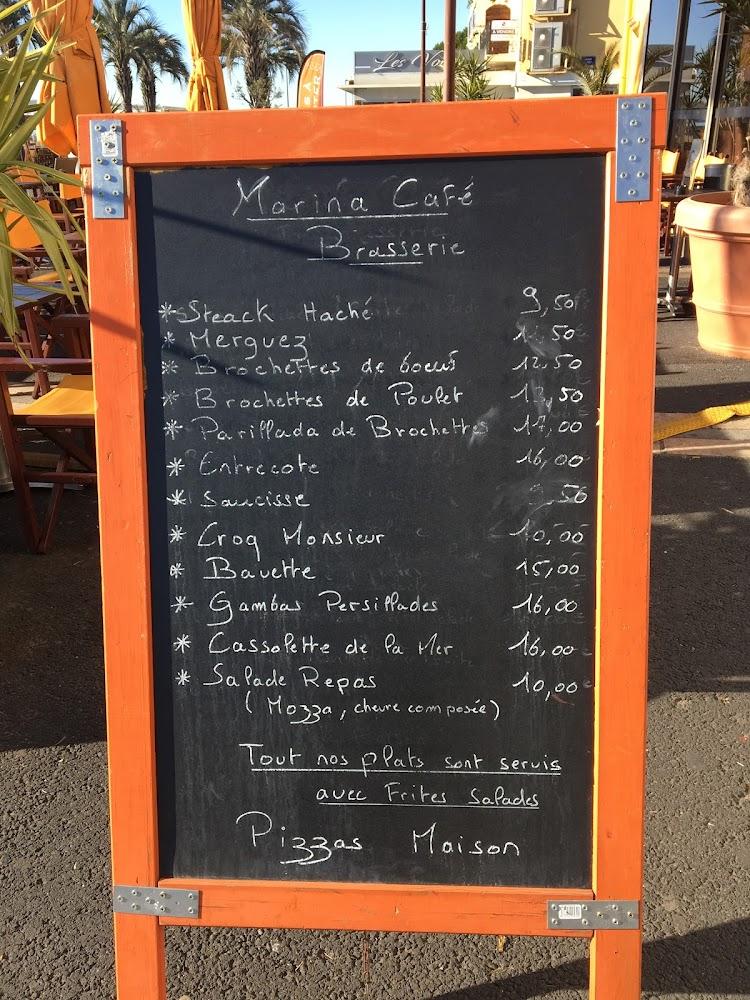 A VENDRE
Marina Café
Brasserie
* Steack Haché 9,50
* Merguez 50
* Brochettes de boeuf 12,50
* Brochettes de Poulet 12,50
* Parillada de Brochettes 17,00
* Entrecote 16,00
* Saucisse 9,50
* Croq Monsieur 10,00
* Bavette 15,00
* Gambas Persillades 16,00
* Cassolette de la Mer 16,00
* Salade Repas 10,00
( Mozza, chevre composée)
Tout nos plats sont servis
avec Frites Salades
Pizzas Maison